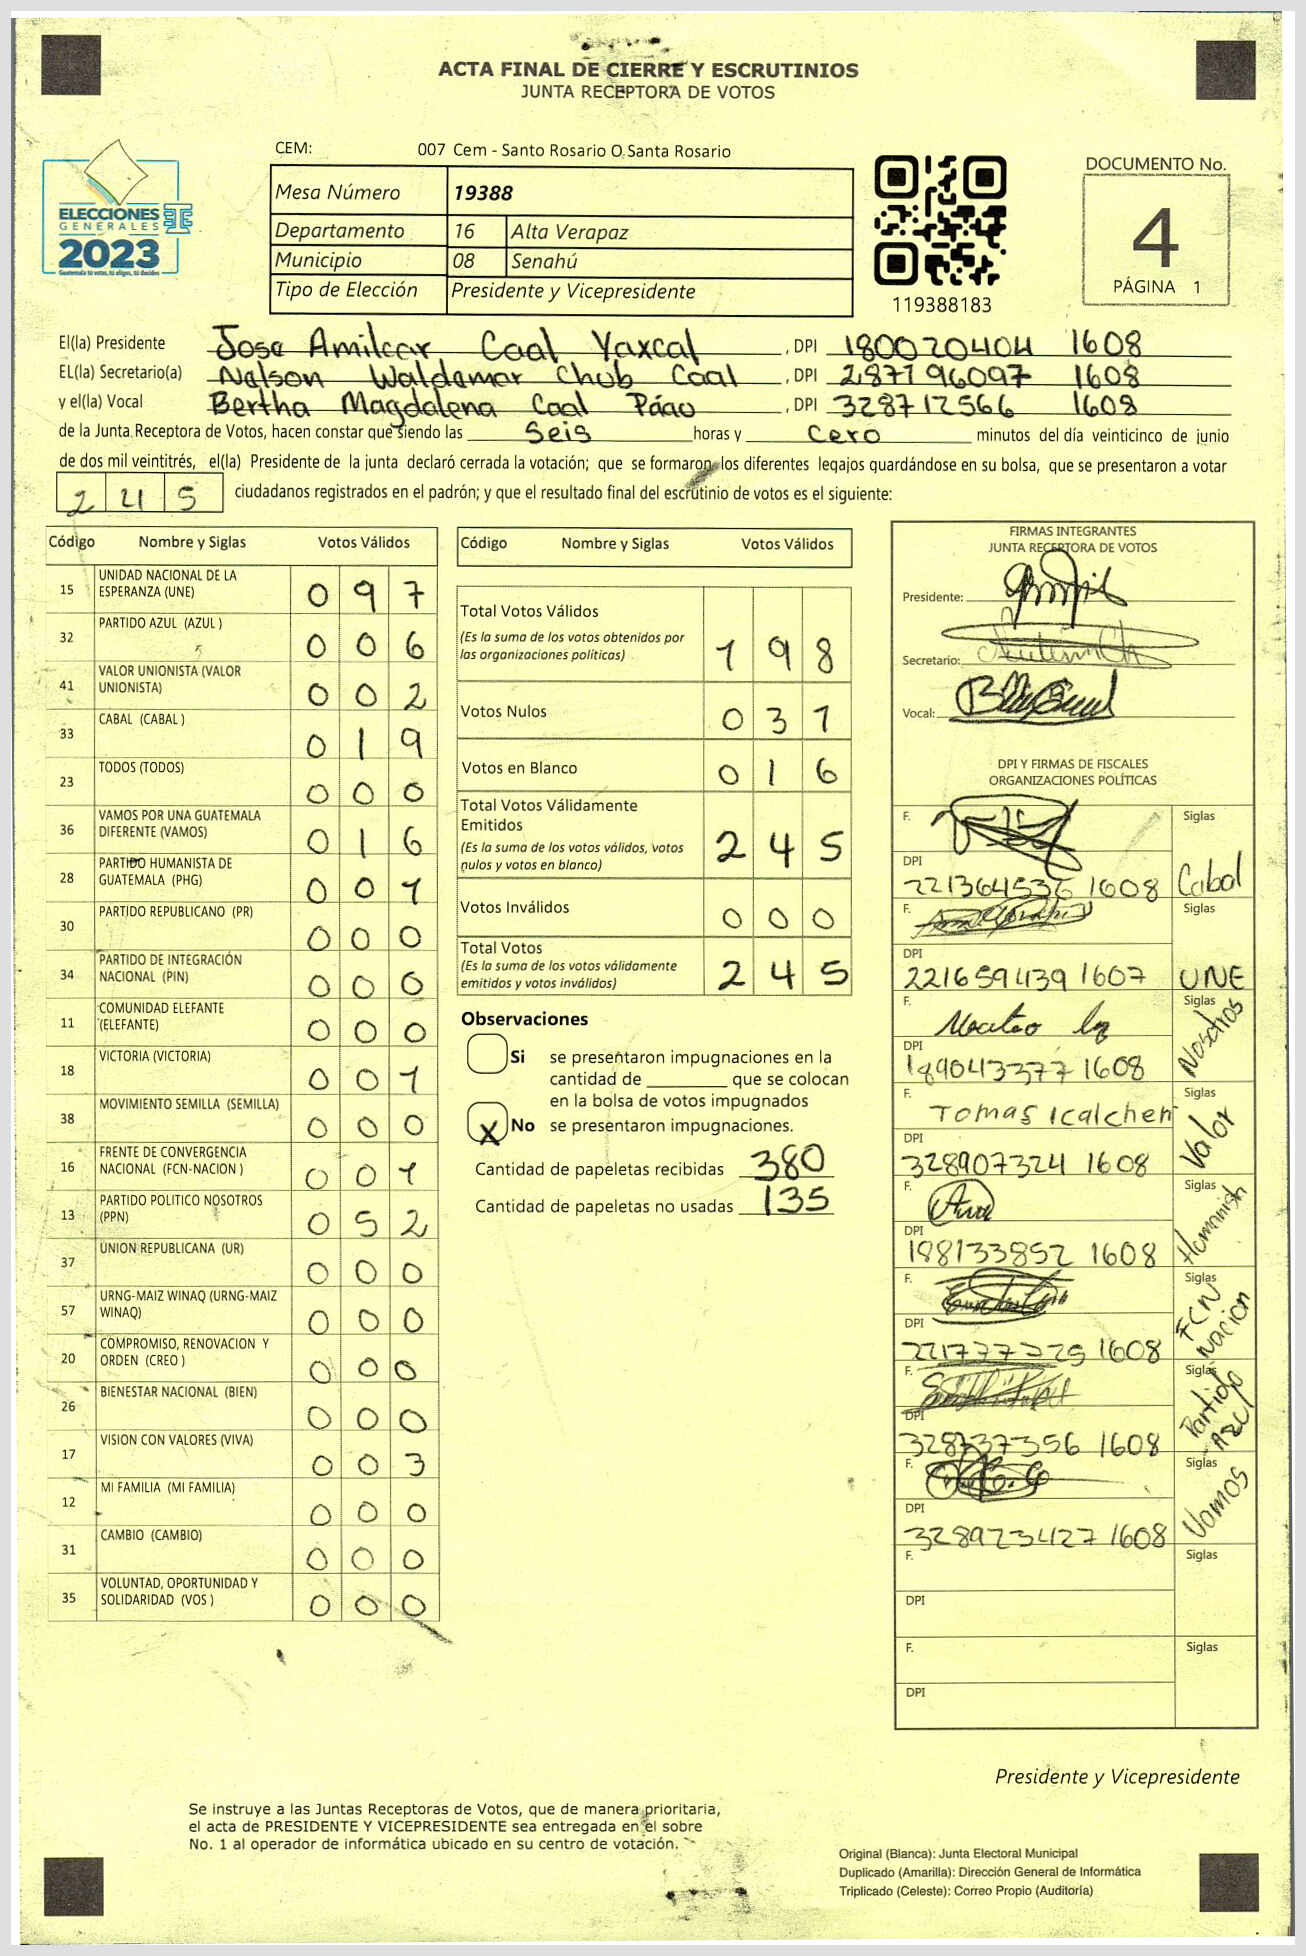 ACTA FINAL DE CIERRE Y ESCRUTINIOS
JUNTA RECEPTORA DE VOTOS
ELECCIONES
GENERALES
2023
Guatemala tú votas, tú eliges, tú decides
CEM: 007 Cem - Santo Rosario O Santa Rosario
Mesa Número 19388
Departamento 16 Alta Verapaz
Municipio 08 Senahú
Tipo de Elección Presidente y Vicepresidente
119388183
DOCUMENTO No.
4
PÁGINA 1
El(la) Presidente Jose Amilcar Caal Yaxcal, DPI 180020404 1608
EL(la) Secretario(a) Nelson Waldemar Chub Caal, DPI 287196097 1608
y el(la) Vocal Bertha Magdalena Caal Páau, DPI 328712566 1608
de la Junta Receptora de Votos, hacen constar que siendo las seis horas y cero minutos del día veinticinco de junio
de dos mil veintitrés, el(la) Presidente de la junta declaró cerrada la votación; que se formaron los diferentes legajos guardándose en su bolsa, que se presentaron a votar
245 ciudadanos registrados en el padrón; y que el resultado final del escrutinio de votos es el siguiente:
Código Nombre y Siglas Votos Válidos
15 UNIDAD NACIONAL DE LA ESPERANZA (UNE) 097
32 PARTIDO AZUL (AZUL ) 006
41 VALOR UNIONISTA (VALOR UNIONISTA) 002
33 CABAL (CABAL ) 019
23 TODOS (TODOS) 000
36 VAMOS POR UNA GUATEMALA DIFERENTE (VAMOS) 016
28 PARTIDO HUMANISTA DE GUATEMALA (PHG) 001
30 PARTIDO REPUBLICANO (PR) 000
34 PARTIDO DE INTEGRACIÓN NACIONAL (PIN) 000
11 COMUNIDAD ELEFANTE (ELEFANTE) 000
18 VICTORIA (VICTORIA) 001
38 MOVIMIENTO SEMILLA (SEMILLA) 000
16 FRENTE DE CONVERGENCIA NACIONAL (FCN-NACION ) 001
13 PARTIDO POLITICO NOSOTROS (PPN) 052
37 UNION REPUBLICANA (UR) 000
57 URNG-MAIZ WINAQ (URNG-MAIZ WINAQ) 000
20 COMPROMISO, RENOVACION Y ORDEN (CREO ) 000
26 BIENESTAR NACIONAL (BIEN) 000
17 VISION CON VALORES (VIVA) 003
12 MI FAMILIA (MI FAMILIA) 000
31 CAMBIO (CAMBIO) 000
35 VOLUNTAD, OPORTUNIDAD Y SOLIDARIDAD (VOS ) 000
Código Nombre y Siglas Votos Válidos
Total Votos Válidos 198
(Es la suma de los votos obtenidos por
las organizaciones políticas)
Votos Nulos 031
Votos en Blanco 016
Total Votos Válidamente
Emitidos 245
(Es la suma de los votos válidos, votos
nulos y votos en blanco)
Votos Inválidos 000
Total Votos 245
(Es la suma de los votos válidamente
emitidos y votos inválidos)
Observaciones
Si se presentaron impugnaciones en la
cantidad de ________ que se colocan
en la bolsa de votos impugnados
X No se presentaron impugnaciones.
Cantidad de papeletas recibidas 380
Cantidad de papeletas no usadas 135
FIRMAS INTEGRANTES
JUNTA RECEPTORA DE VOTOS
Presidente:
Secretario:
Vocal:
DPI Y FIRMAS DE FISCALES
ORGANIZACIONES POLÍTICAS
F. Siglas
DPI 221364536 1608 Cabal
F. Siglas
DPI 221659439 1607 UNE
F. Siglas
DPI 189043377 1608 Nosotros
F. Tomas Icalchen Siglas
DPI 328907324 1608 Valor
F. Siglas
DPI 188133852 1608 Humanista
F. Siglas
DPI 1608 FCN Nacion
F. Siglas
DPI 328737356 1608 Partido Azul
F. Siglas
DPI 328923427 1608 Vamos
F. Siglas
DPI
F. Siglas
DPI
Presidente y Vicepresidente
Se instruye a las Juntas Receptoras de Votos, que de manera prioritaria,
el acta de PRESIDENTE Y VICEPRESIDENTE sea entregada en el sobre
No. 1 al operador de informática ubicado en su centro de votación.
Original (Blanca): Junta Electoral Municipal
Duplicado (Amarilla): Dirección General de Informática
Triplicado (Celeste): Correo Propio (Auditoría)